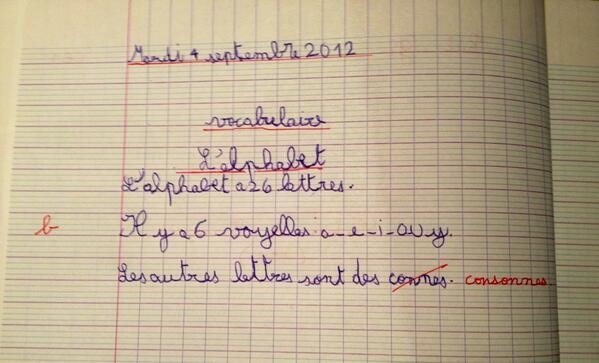 Mardi 4 septembre 2012
vocabulaire
L'alphabet
L'alphabet a 26 lettres.
b Il y a 6 voyelles : a-e-i-o u y.
Les autres lettres sont des connes. consonnes.